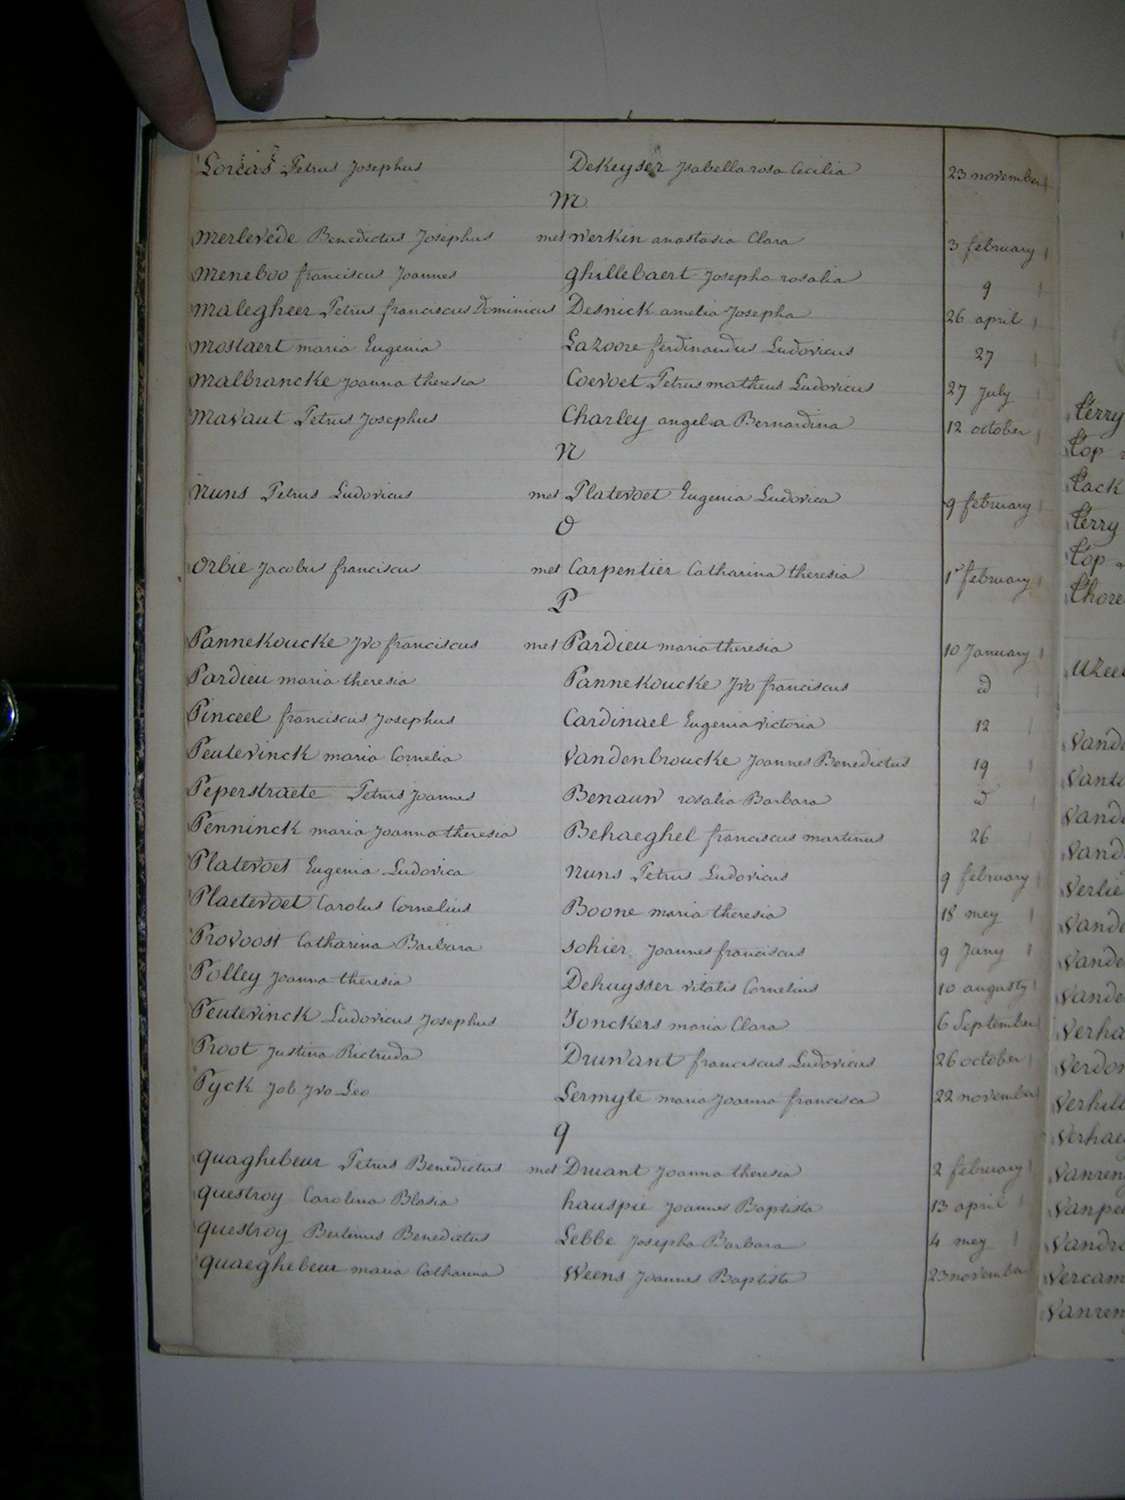 Lorias Petrus Josephus Dekeyser Isabella rosa Cecilia 23 november
M
Merlevede Benedictus Josephus met werkin anastasia Clara 3 february
Meneboo franciscus Joannes ghillebaert Josepha rosalia 9
Malegheer Petrus franciscus Dominicus Desnick amelia Josepha 26 april
Mostaert maria Eugenia Lazoore ferdinandus Ludovicus 27
Malbrancke Joanna theresia Coevoet Petrus matheus Ludovicus 27 July
Mavaut Petrus Josephus Charley angela Bernardina 12 october
N
Nuns Petrus Ludovicus met Platevoet Eugenia Ludovica 9 february
O
Orbie Jacobus franciscus met Carpentier Catharina theresia 1r february
P
Pannekoucke Jvo franciscus met Pardieu maria theresia 10 January
Pardieu maria theresia Pannekoucke Jvo franciscus d
Pinceel franciscus Josephus Cardinael Eugenia victoria 12
Peutevinck maria Cornelia Vandenbroucke Joannes Benedictus 19
Peperstraete Petrus Joannes Benauw rosalia Barbara d
Penninck maria Joanna theresia Behaeghel franciscus martinus 26
Platevoet Eugenia Ludovica Nuns Petrus Ludovicus 9 february
Plaetevoet Carolus Cornelius Boone maria theresia 18 mey
Provoost Catharina Barbara Sohier Joannes franciscus 9 Juny
Polley Joanna theresia Dehuysser vitalis Cornelius 10 augusty
Peutevinck Ludovicus Josephus Jonckers maria Clara 6 September
Proot Justina Rictruda Druwant franciscus Ludovicus 26 october
Pyck Job Jvo Leo Lermyte maria Joanna francisca 22 november
q
quaghebeur Petrus Benedictus met Druant Joanna theresia 2 february
questroy Carolina Blasia hauspie Joannes Baptista 13 april
questroy Bertinus Benedictus Lebbe Josepha Barbara 4 mey
quaeghebeur maria Catharina Weens Joannes Baptista 23 november